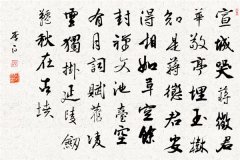 宣城哭蔣徵君
華敬亭埋玉樹
知是蔣徵君安
得相如草空餘
封禪文池臺空
有月詞賦舊凌
雲獨掛延陵劍
千秋在古墳